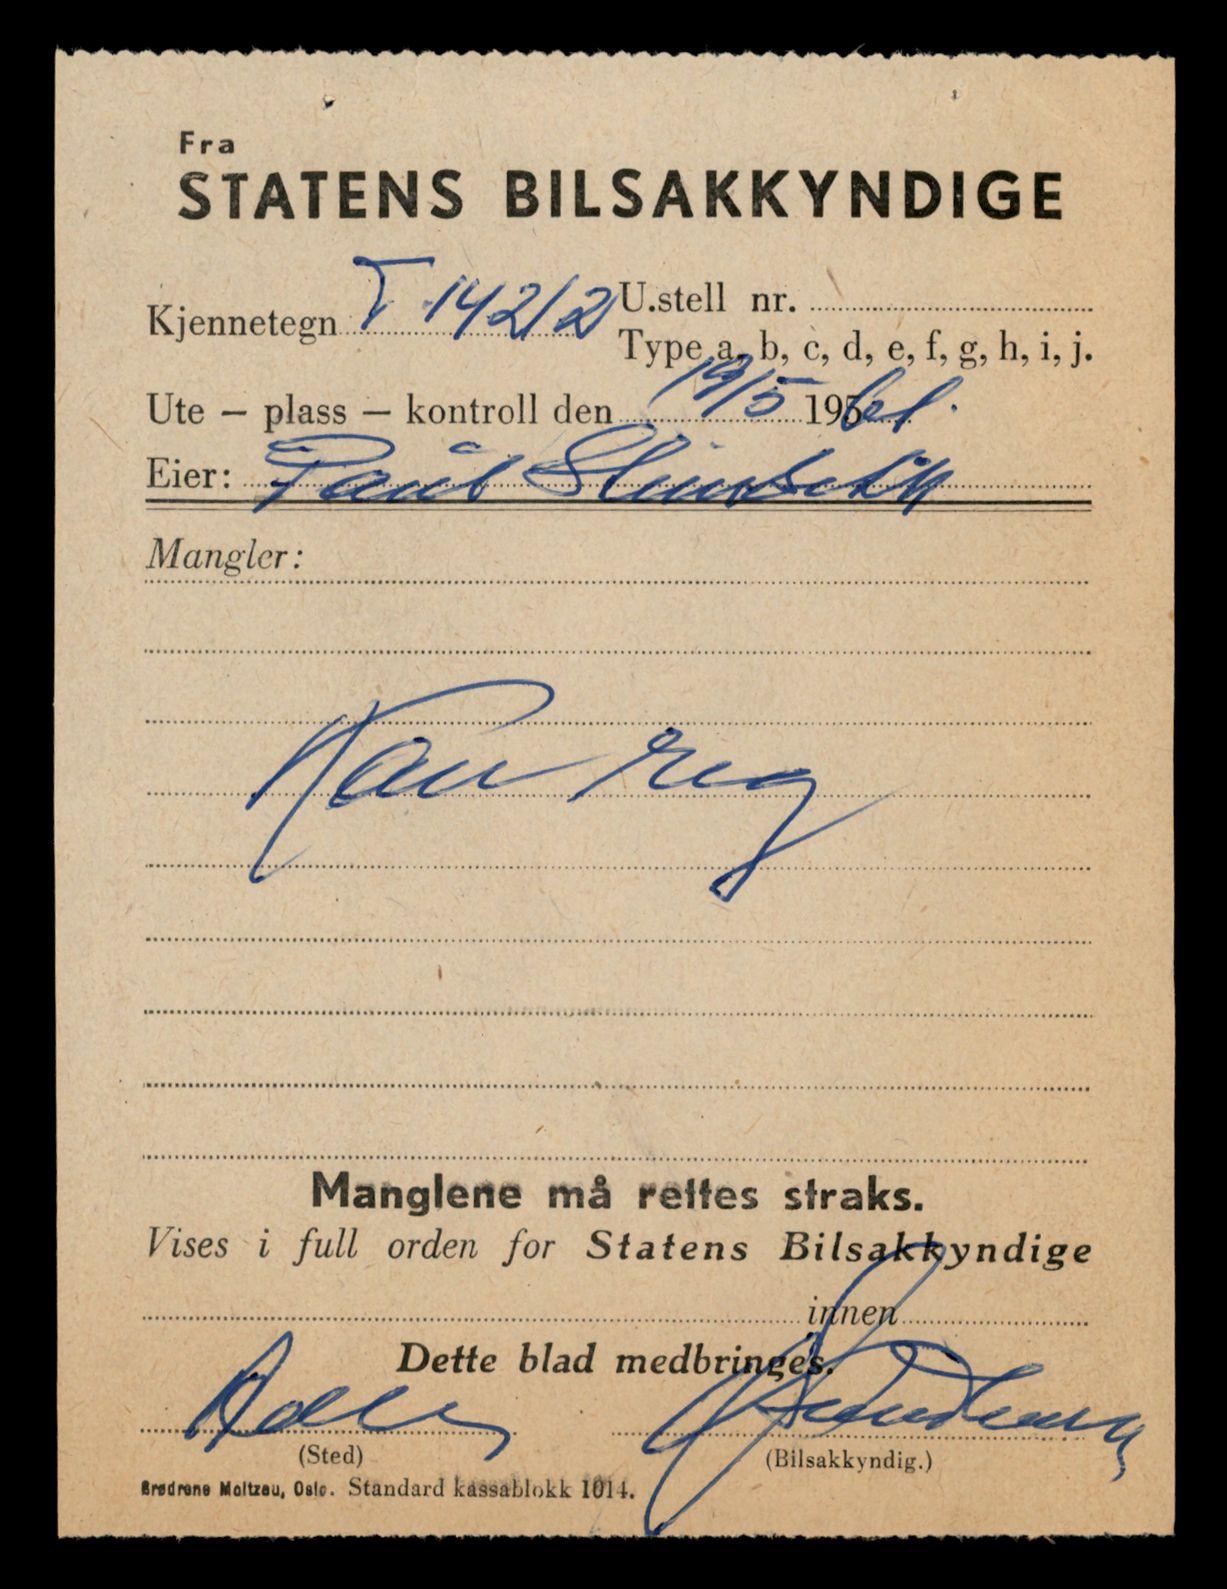 Fra
STATENS BILSAKKYNDIGE
Kjennetegn T 14212 U.stell nr.
Type a, b, c, d, e, f, g, h, i, j.
Ute – plass – kontroll den 19/5 195 61.
Eier: Paul
Mangler:
Kan reg
Manglene må rettes straks.
Vises i full orden for Statens Bilsakkyndige
innen
Dette blad medbringes.
(Sted) (Bilsakkyndig.)
Brødrene Moltzau, Oslo. Standard kassablokk 1014.